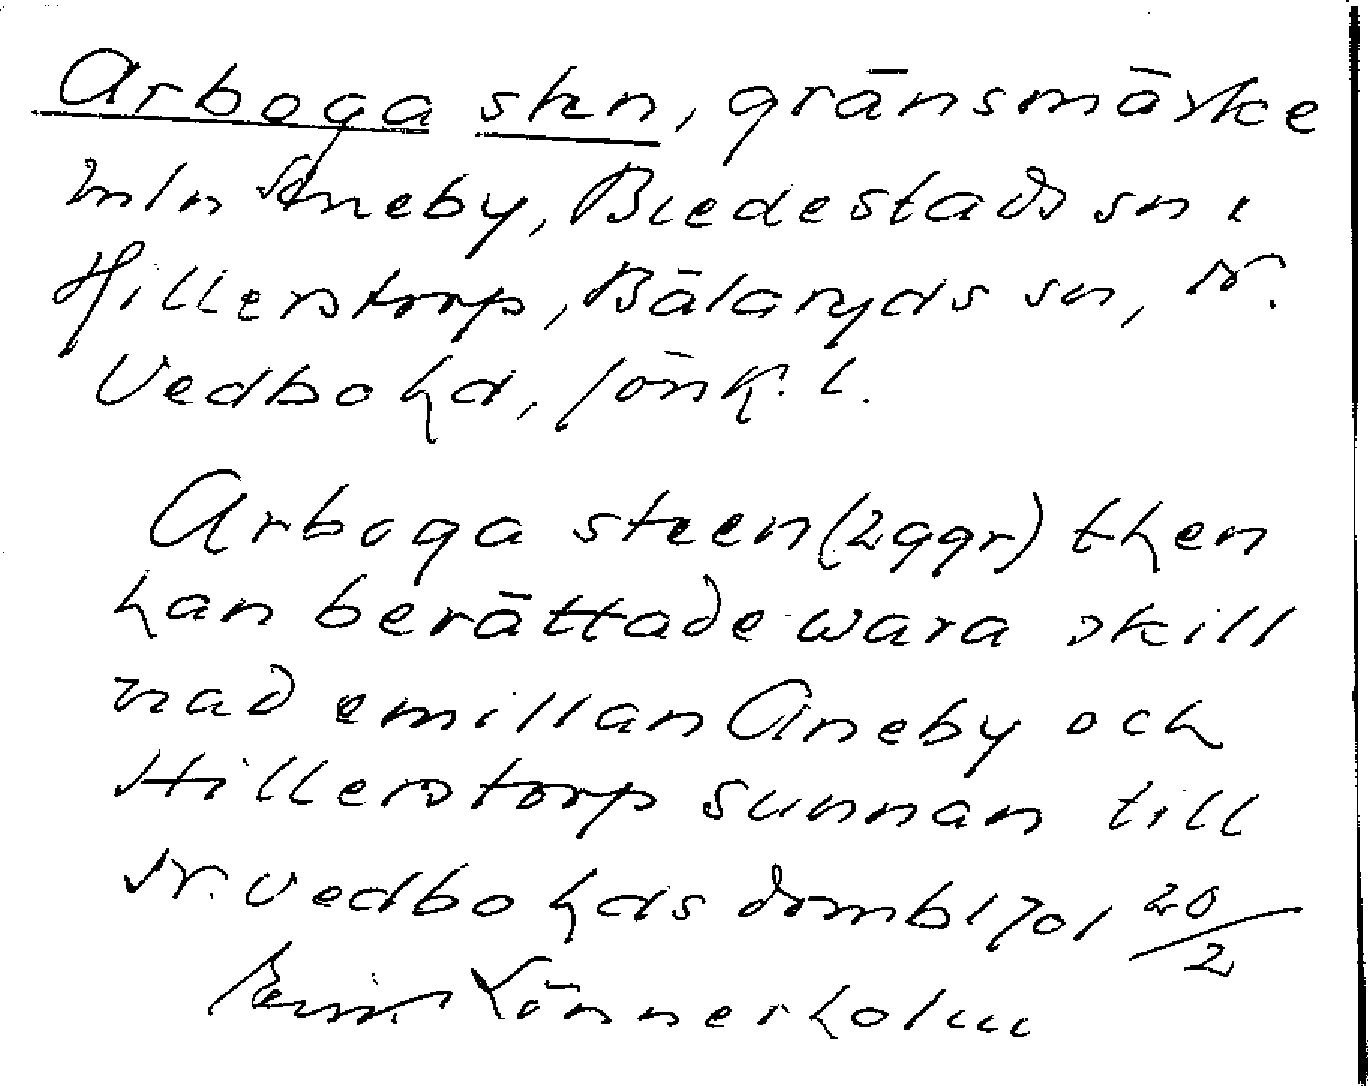 Arboga sten, gränsmärke
mln Aneby, Bredestads sn o
Hillerstorp, Bälaryds sn, N.
Vedbo hd, Jönk. l.
Arboga steen (2 ggr) then
han berättade wara skill
nad emillan Aneby och
Hillerstorp sunnan till
N. Vedbo hds domb 1701 20/2
Einar Könnerholm